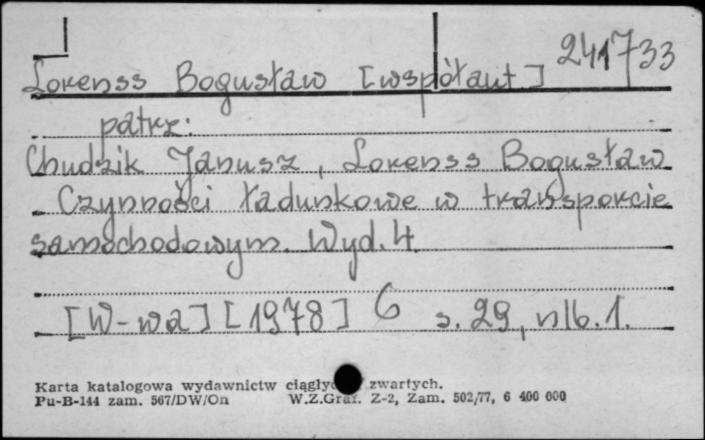 Lorenss Bogusław [współaut] 241733
patrz:
Chudzik Janusz, Lorenss Bogusław
Czynności ładunkowe w transporcie
samochodowym. Wyd. 4.
[W-wa] [1978] 6 s. 29, nlb. 1.
Karta katalogowa wydawnictw ciągłyc zwartych.
Pu-B-144 zam. 567/DW/On W.Z.Graf. Z-2, Zam. 502/77, 6 400 000